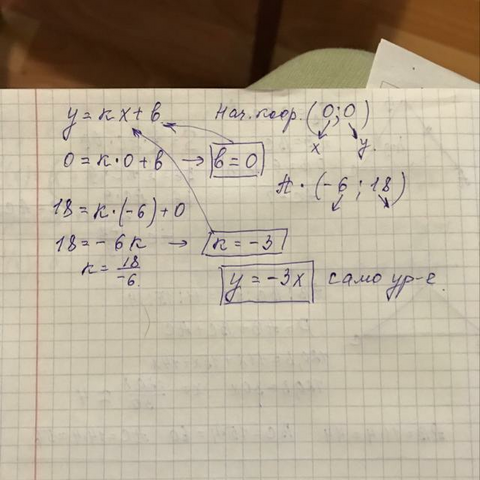 y = кx + в
Нач. коор. (0; 0)
x y
0 = к · 0 + в → в = 0
А · (-6; 18)
18 = к · (-6) + 0
18 = - 6к → к = -3
к = 18/-6
y = -3x само ур-е